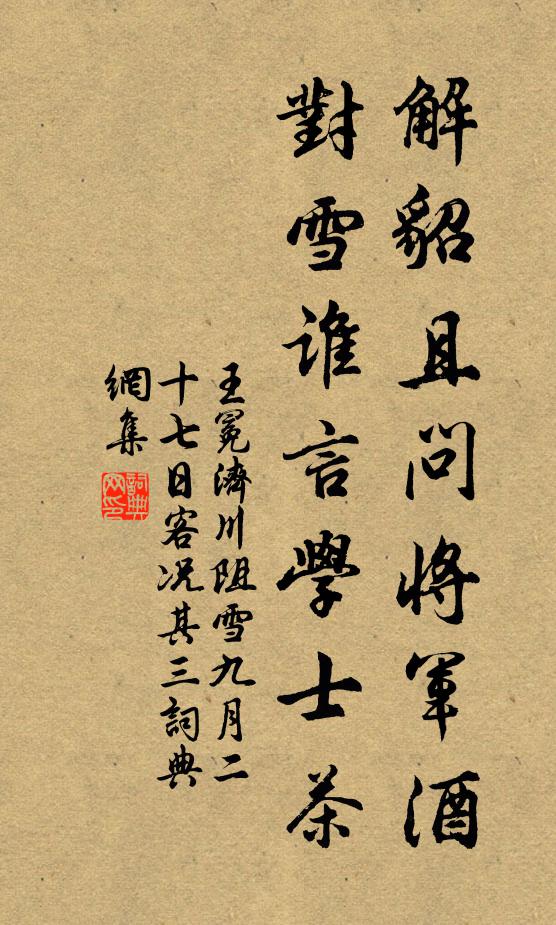 解貂且問將軍酒
對雪誰言學士茶
王冕濟川阻雪九月二
十七日客况其三詞典
網集
詞典
网印